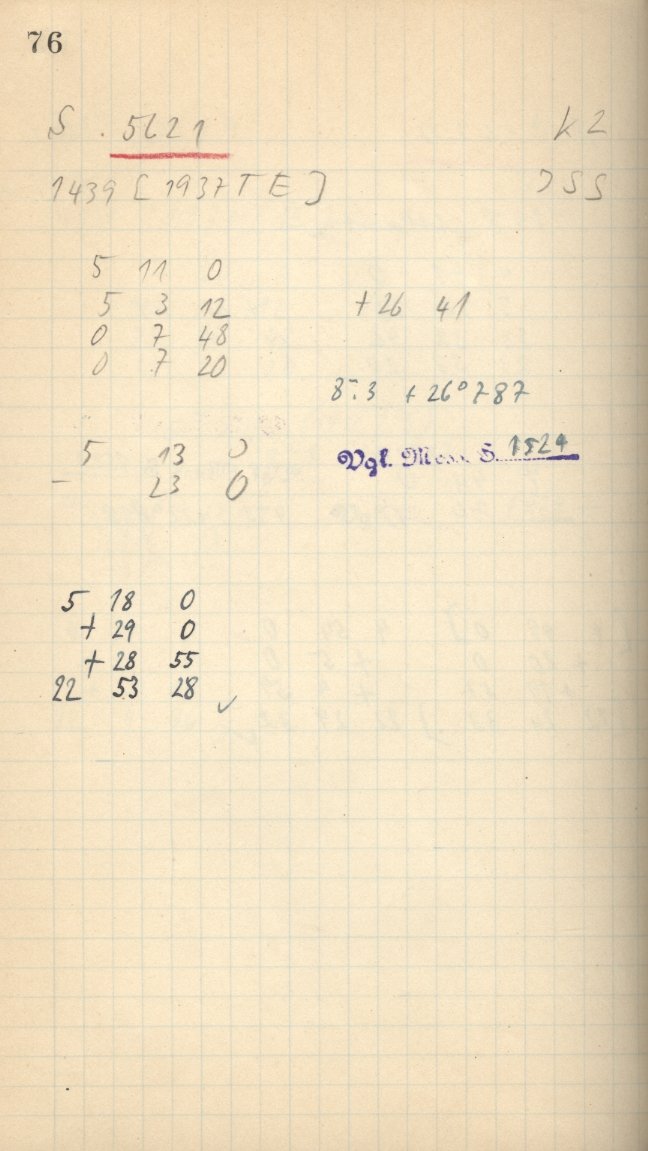 76
S . 5621 K2
1439 [ 1937 T E ] JSS
5 11 0
5 3 12 + 26 41
0 7 48
0 7 20
8.3 + 26° 787
5 13 0
Vgl. Mess. S. 1524
- 23 0
5 18 0
+ 29 0
+ 28 55
22 53 28 ✓